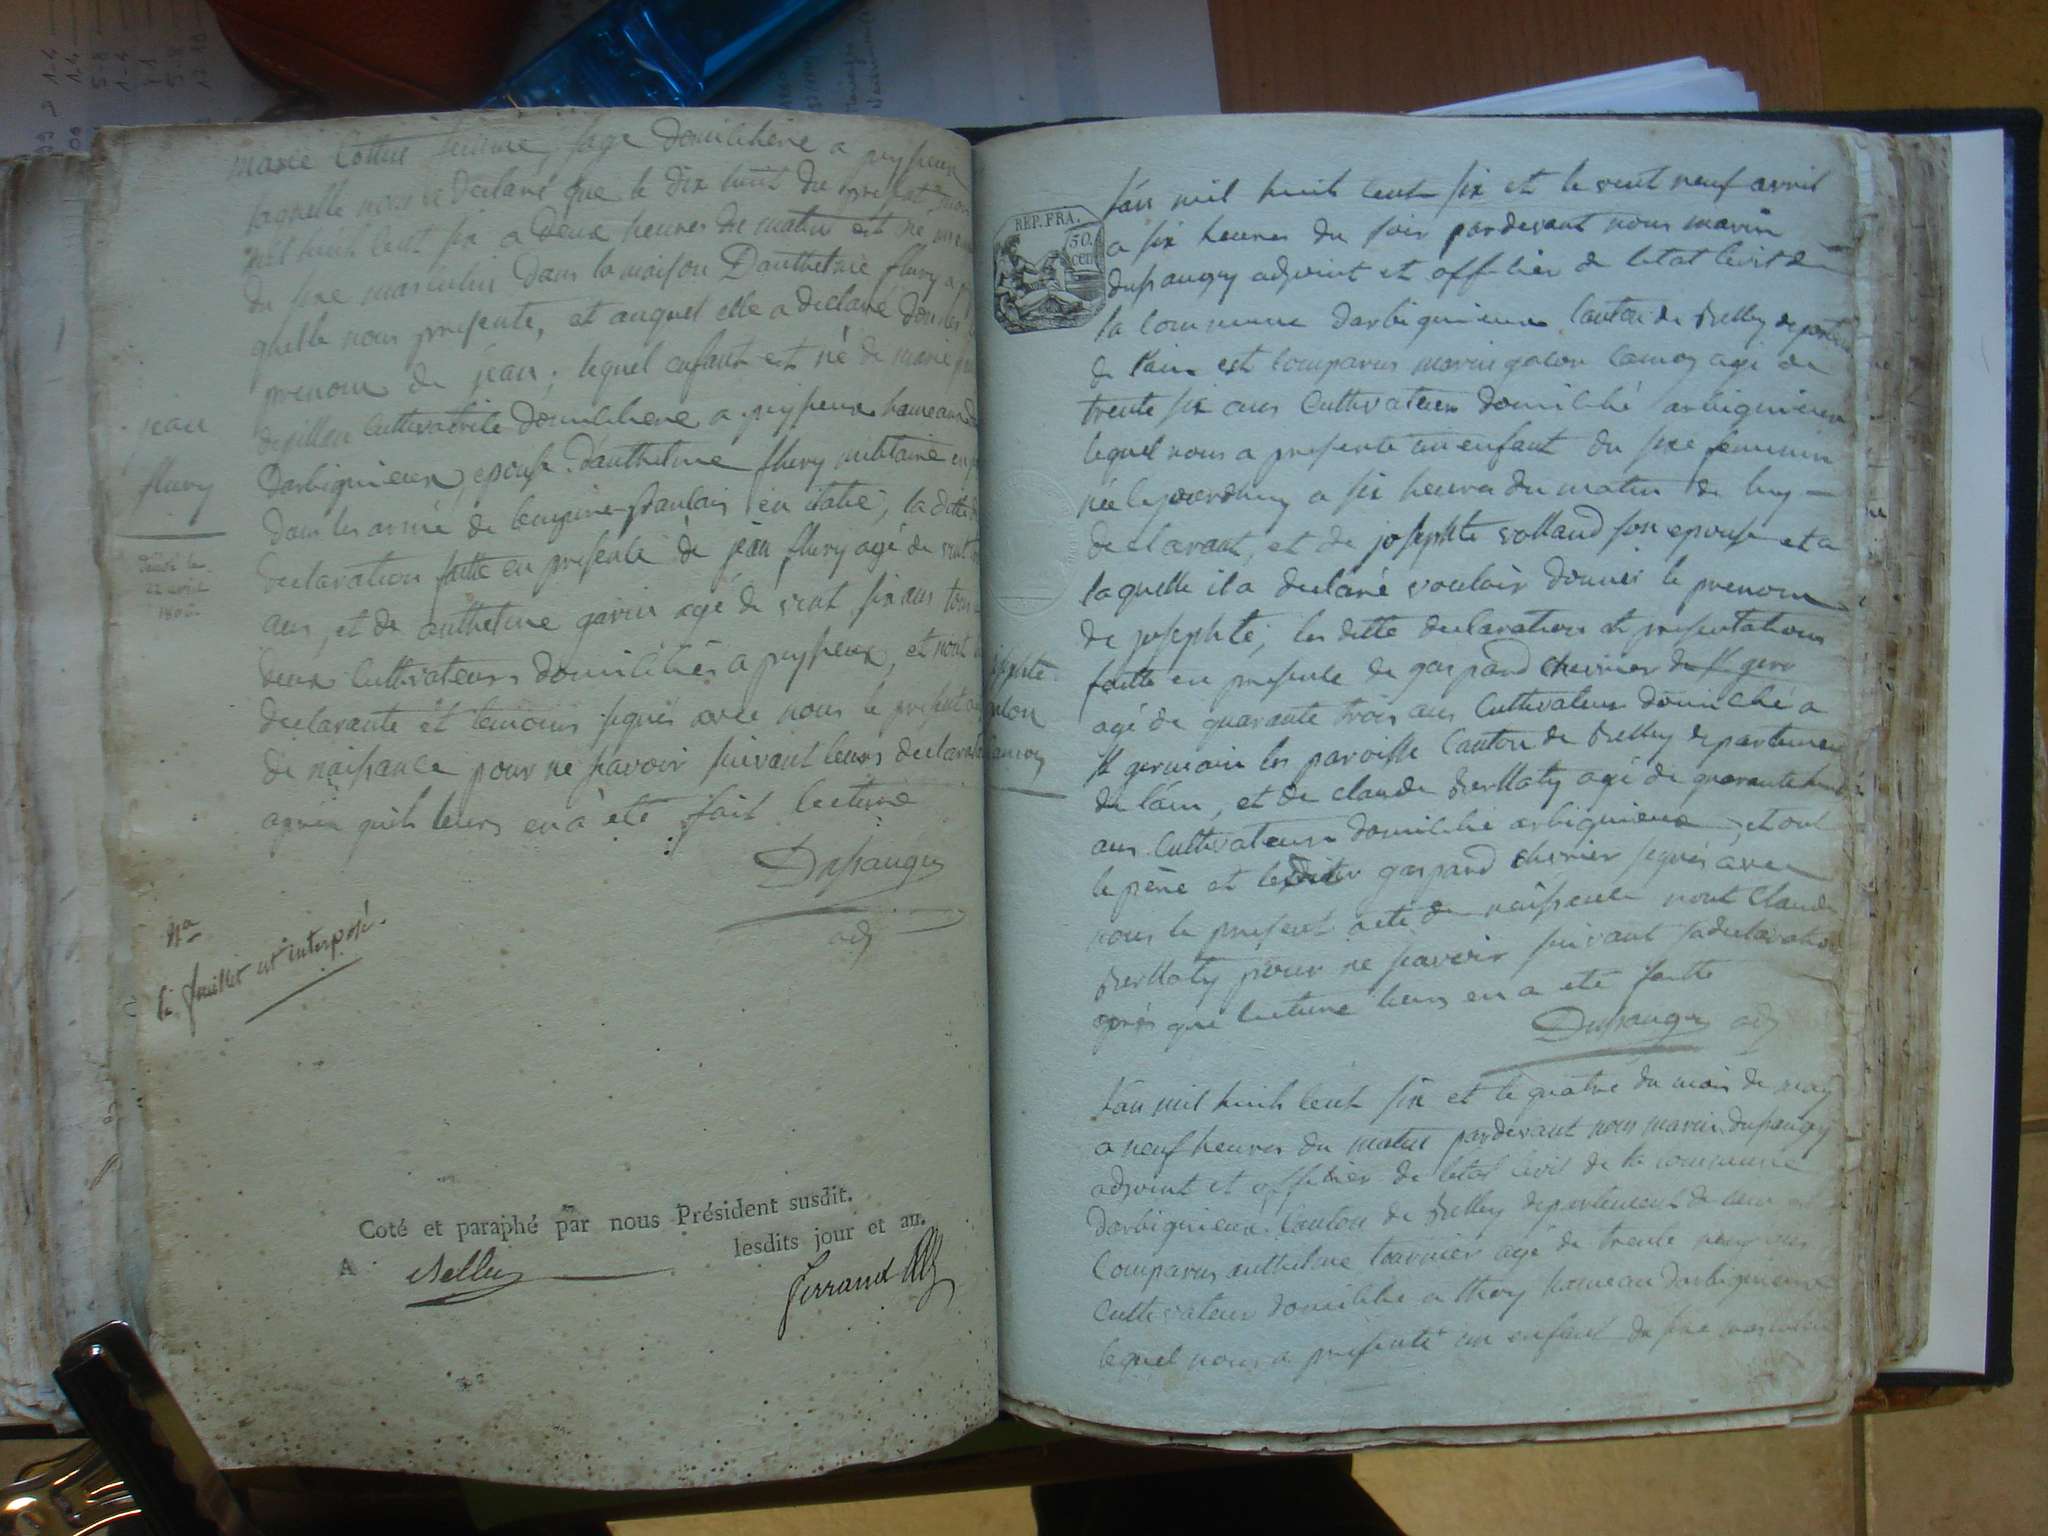 marie Cottue femme, sage domiciliere a peyzieux
laquelle nous a declaré que le dix huit du present mois
mil huit cent six a deux heures du matin est né un enfant
du sexe masculin dans la maison Danthelme flury a
quelle nous presente, et auquel elle a declaré donner le
prenom de jean, lequel enfant est né de marie
depillon Cultivatrice domiciliere a peyzieux hameau
Darbignieux, epouse danthelme flury militaire en
dans les armé de lempire francais en italie, la ditte
declaration faitte en presence de jean flury agé de vint
ans, et de anthelme gavin agé de vint six ans tous
deux Cultivateurs domiciliés a peyzieux, et n'ont
declarante et temoins signés avec nous le present acte
de naissance pour ne savoir suivant leurs declaration
apres quils leurs en a été fait lecture
Dupraugey
adj
jean
flury
décédé le
22 avril
Na
le feuillet est interposé.
Coté et paraphé par nous Président susdit.
A Belley lesdits jour et an.
Ferrand
REP. FRA.
50.
cen
josephte
galon
Camoz
L'an mil huit cent six et le vint neuf avril
a six heures du soir pardevant nous marin
Dupraugey adjoint et officier de letat civil de
la commune darbignieux Canton de Belley departement
de l'ain est comparus marin galon Camoz agé de
trente six ans Cultivateur domicilié arbignieux
lequel nous a presenté un enfant du sexe feminin
née le jourdhuy a six heures du matin de luy
declarant, et de josephte volland son epouse et a
laquelle il a declaré vouloir donner le prenom
de josephte, les ditte declaration et presentation
faitte en presence de gaspard chevrier de st germ
agé de quarante trois ans Cultivateur domicilié a
st germain les paroisse Canton de Belley departement
de l'ain, et de claude Berthoty agé de quarante huit
ans Cultivateur domicilié arbignieux, et ont
le père et ledit gaspard chevrier signés avec
nous le present acte de naissance nont claude
Berthoty pour ne savoir suivant sa declaration
aprés que lecture leurs en a été faitte
Dupraugey adj
L'an mil huit cent six et le quatre du mois de may
a neuf heures du matin pardevant nous marin dupraugey
adjoint et officier de letat civil de la commune
Darbignieux Canton de Belley departement de lain est
Comparus anthelme tournier agé de trente neuf ans
Cultivateur domicilié a thoy hameau darbignieux
lequel nous a presenté un enfant du sexe masculin